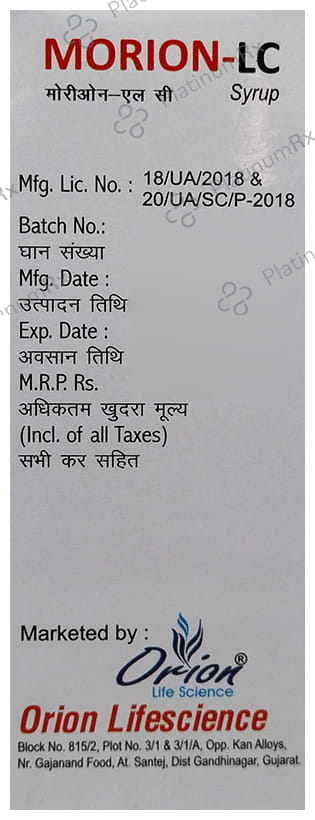 MORION-LC
मोरीओन-एल सी Syrup
Mfg. Lic. No. : 18/UA/2018 &
20/UA/SC/P-2018
Batch No.:
घान संख्या
Mfg. Date :
उत्पादन तिथि
Exp. Date :
अवसान तिथि
M.R.P. Rs.
अधिकतम खुदरा मूल्य
(Incl. of all Taxes)
सभी कर सहित
Marketed by :
Orion®
Life Science
Orion Lifescience
Block No. 815/2, Plot No. 3/1 & 3/1/A, Opp. Kan Alloys,
Nr. Gajanand Food, At. Santej, Dist Gandhinagar, Gujarat.
PlatinumRx
PlatinumRx
PlatinumRx